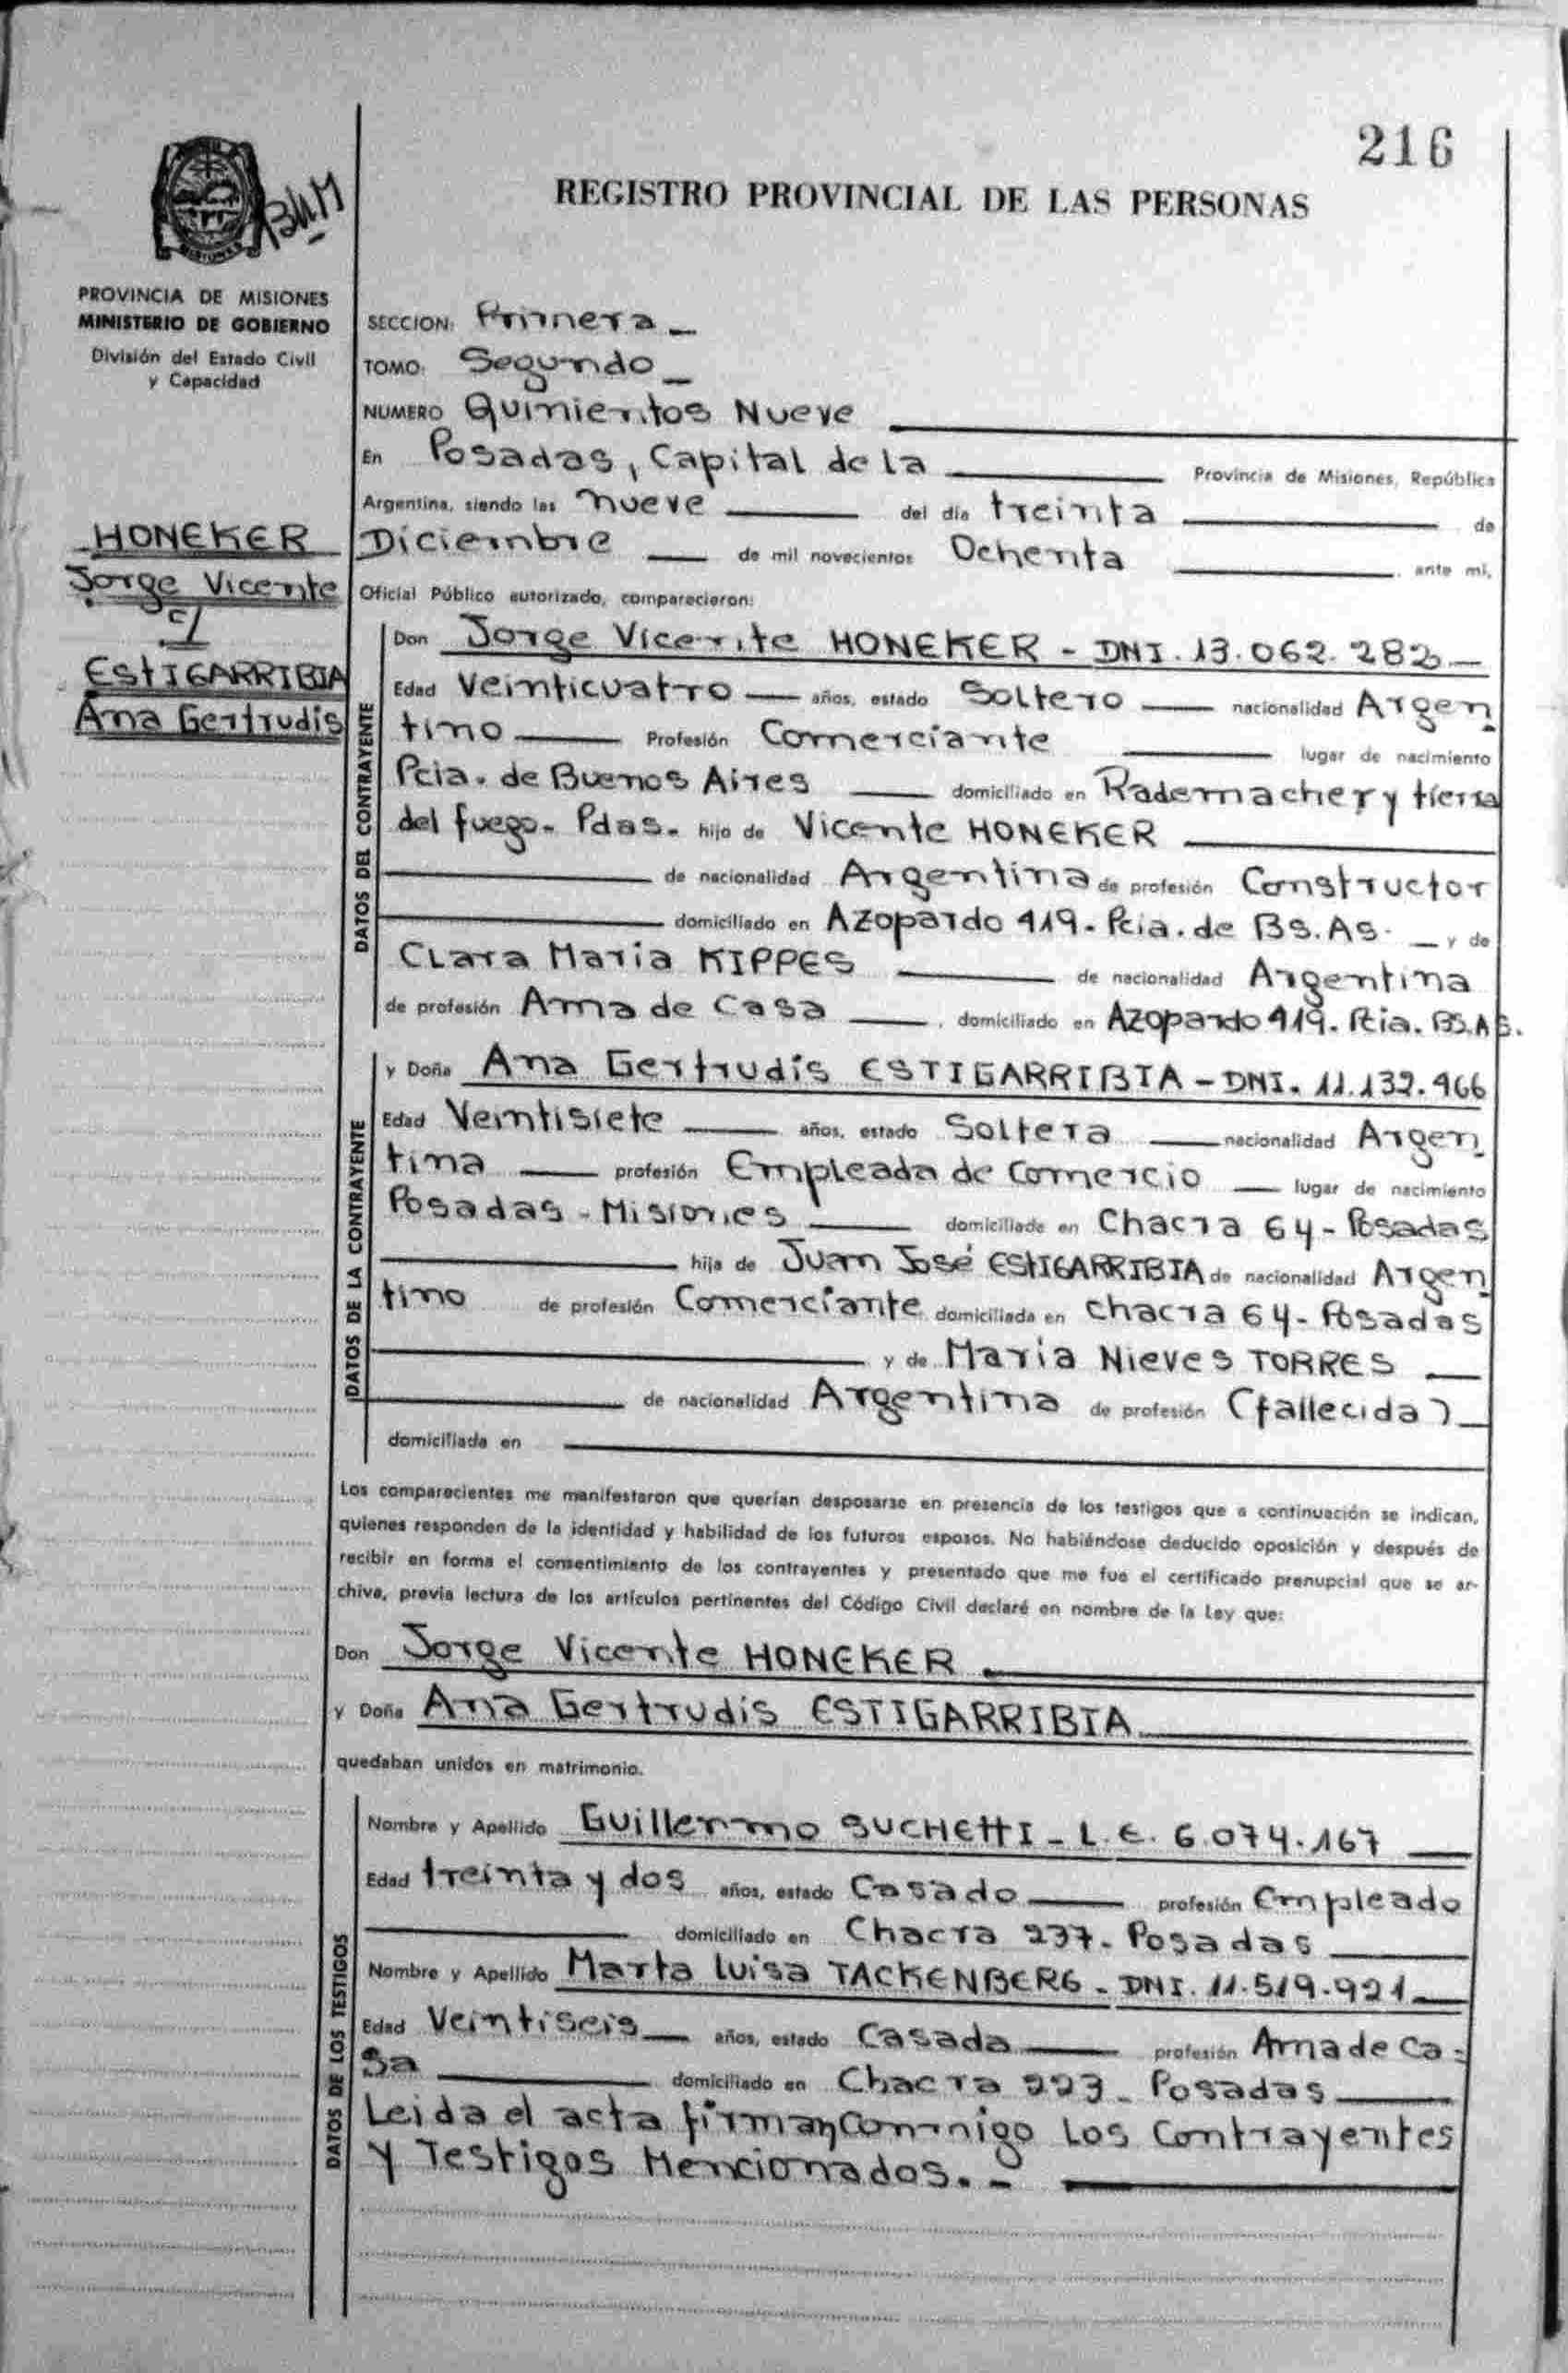 216
REGISTRO PROVINCIAL DE LAS PERSONAS
MISIONES
PROVINCIA DE MISIONES
MINISTERIO DE GOBIERNO
División del Estado Civil
y Capacidad
HONEKER
Jorge Vicente
c/
ESTIGARRIBIA
Ana Gertrudis
SECCION: Primera
TOMO: Segundo
NUMERO Quinientos Nueve
En Posadas, Capital de la Provincia de Misiones, República
Argentina, siendo las nueve del día treinta de
Diciembre de mil novecientos Ochenta ante mí,
Oficial Público autorizado, comparecieron:
DATOS DEL CONTRAYENTE
Don Jorge Vicente HONEKER - DNI. 13.062.282
Edad Veinticuatro años, estado Soltero nacionalidad Argen
tino Profesión Comerciante lugar de nacimiento
Pcia. de Buenos Aires domiciliado en Rademacher y tierra
del fuego. Pdas. hijo de Vicente HONEKER
de nacionalidad Argentina de profesión Constructor
domiciliado en Azopardo 419. Pcia. de BS. AS. y de
Clara Maria KIPPES de nacionalidad Argentina
de profesión Ama de Casa, domiciliado en Azopardo 419. Pcia. BS.AS.
DATOS DE LA CONTRAYENTE
y Doña Ana Gertrudis ESTIGARRIBIA - DNI. 11.132.466
Edad Veintisiete años, estado Soltera nacionalidad Argen
tina profesión Empleada de Comercio lugar de nacimiento
Posadas - Misiones domiciliada en Chacra 64 - Posadas
hija de Juan José ESTIGARRIBIA de nacionalidad Argen
tino de profesión Comerciante domiciliada en chacra 64 - Posadas
y de Maria Nieves TORRES
de nacionalidad Argentina de profesión (fallecida)
domiciliada en
Los comparecientes me manifestaron que querían desposarse en presencia de los testigos que a continuación se indican,
quienes responden de la identidad y habilidad de los futuros esposos. No habiéndose deducido oposición y después de
recibir en forma el consentimiento de los contrayentes y presentado que me fue el certificado prenupcial que se ar-
chiva, previa lectura de los artículos pertinentes del Código Civil declaré en nombre de la Ley que:
Don Jorge Vicente HONEKER
y Doña Ana Gertrudis ESTIGARRIBIA
quedaban unidos en matrimonio.
DATOS DE LOS TESTIGOS
Nombre y Apellido Guillermo SUCHETTI - L.E. 6.074.167
Edad treinta y dos años, estado Casado profesión Empleado
domiciliado en Chacra 237. Posadas
Nombre y Apellido Marta Luisa TACKENBERG - DNI. 11.519.921
Edad Veintiseis años, estado Casada profesión Ama de Ca=
sa domiciliado en Chacra 223 - Posadas
Leida el acta firman Conmigo Los Contrayentes
y Testigos Mencionados. -